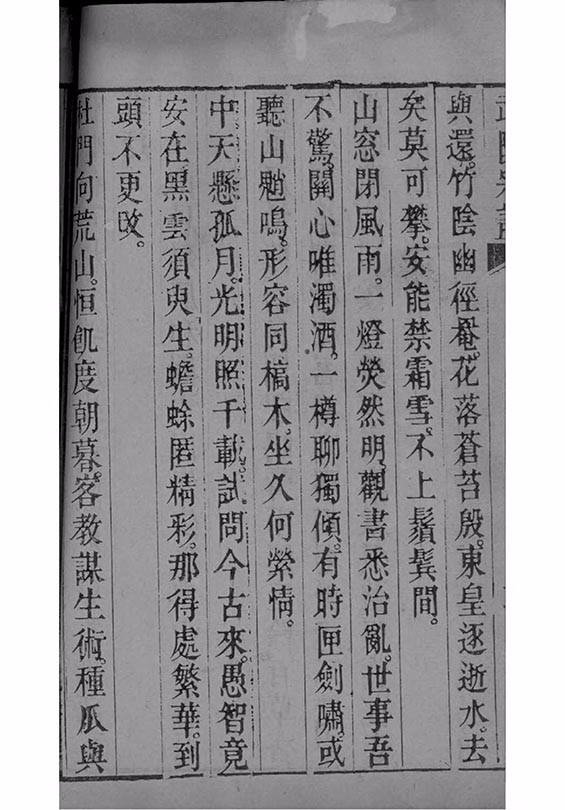 與還。竹陰幽徑罨。花落蒼苔殷。東皇逐逝水。去
矣莫可攀。安能禁霜雪。不上鬚鬂間。
山窓閉風雨。一燈熒然明。觀書悉治亂。世事吾
不驚。關心唯濁酒。一樽聊獨傾。有時匣劍嘯。或
聽山魈鳴。形容同槁木。坐久何縈情。
中天懸孤月。光明照千載。試問今古來。愚智竟
安在。黑雲須臾生。蟾蜍匿精彩。那得處繁華。到
頭不更改。
杜門向荒山。恒飢度朝暮。客教謀生術。種瓜與